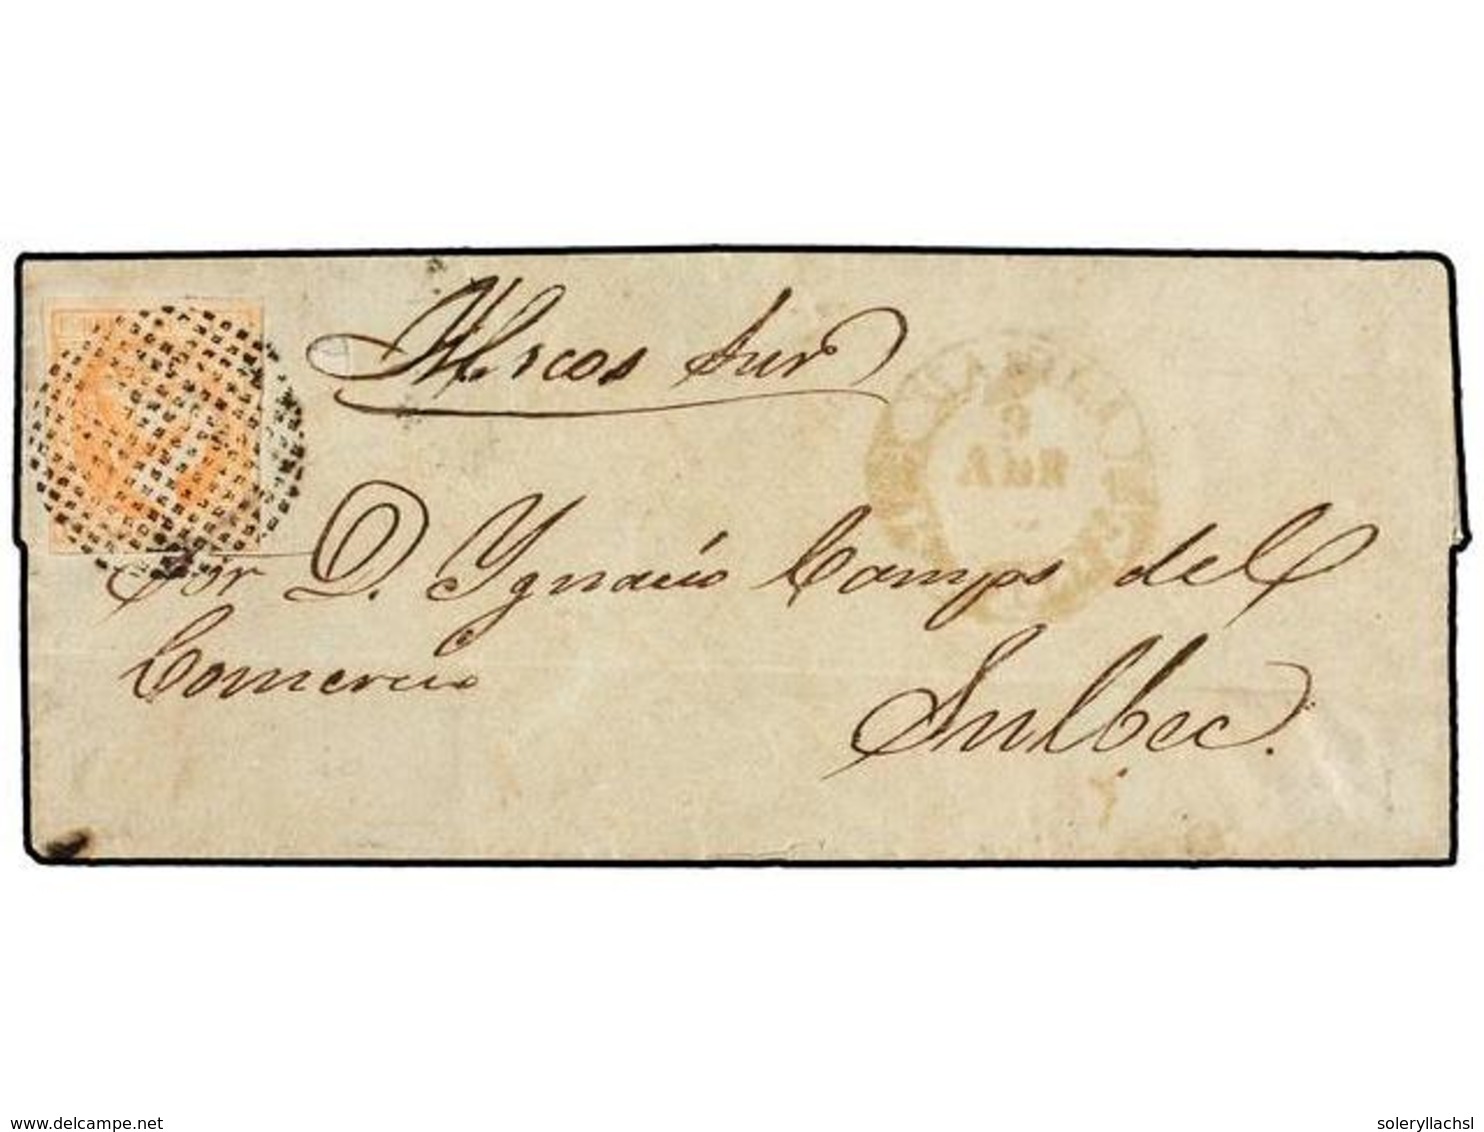 Ylocos Sur
Sor D. Ygnacio Camps del
Comercio
Sulbec.
delcampe.net
soleryllachsl